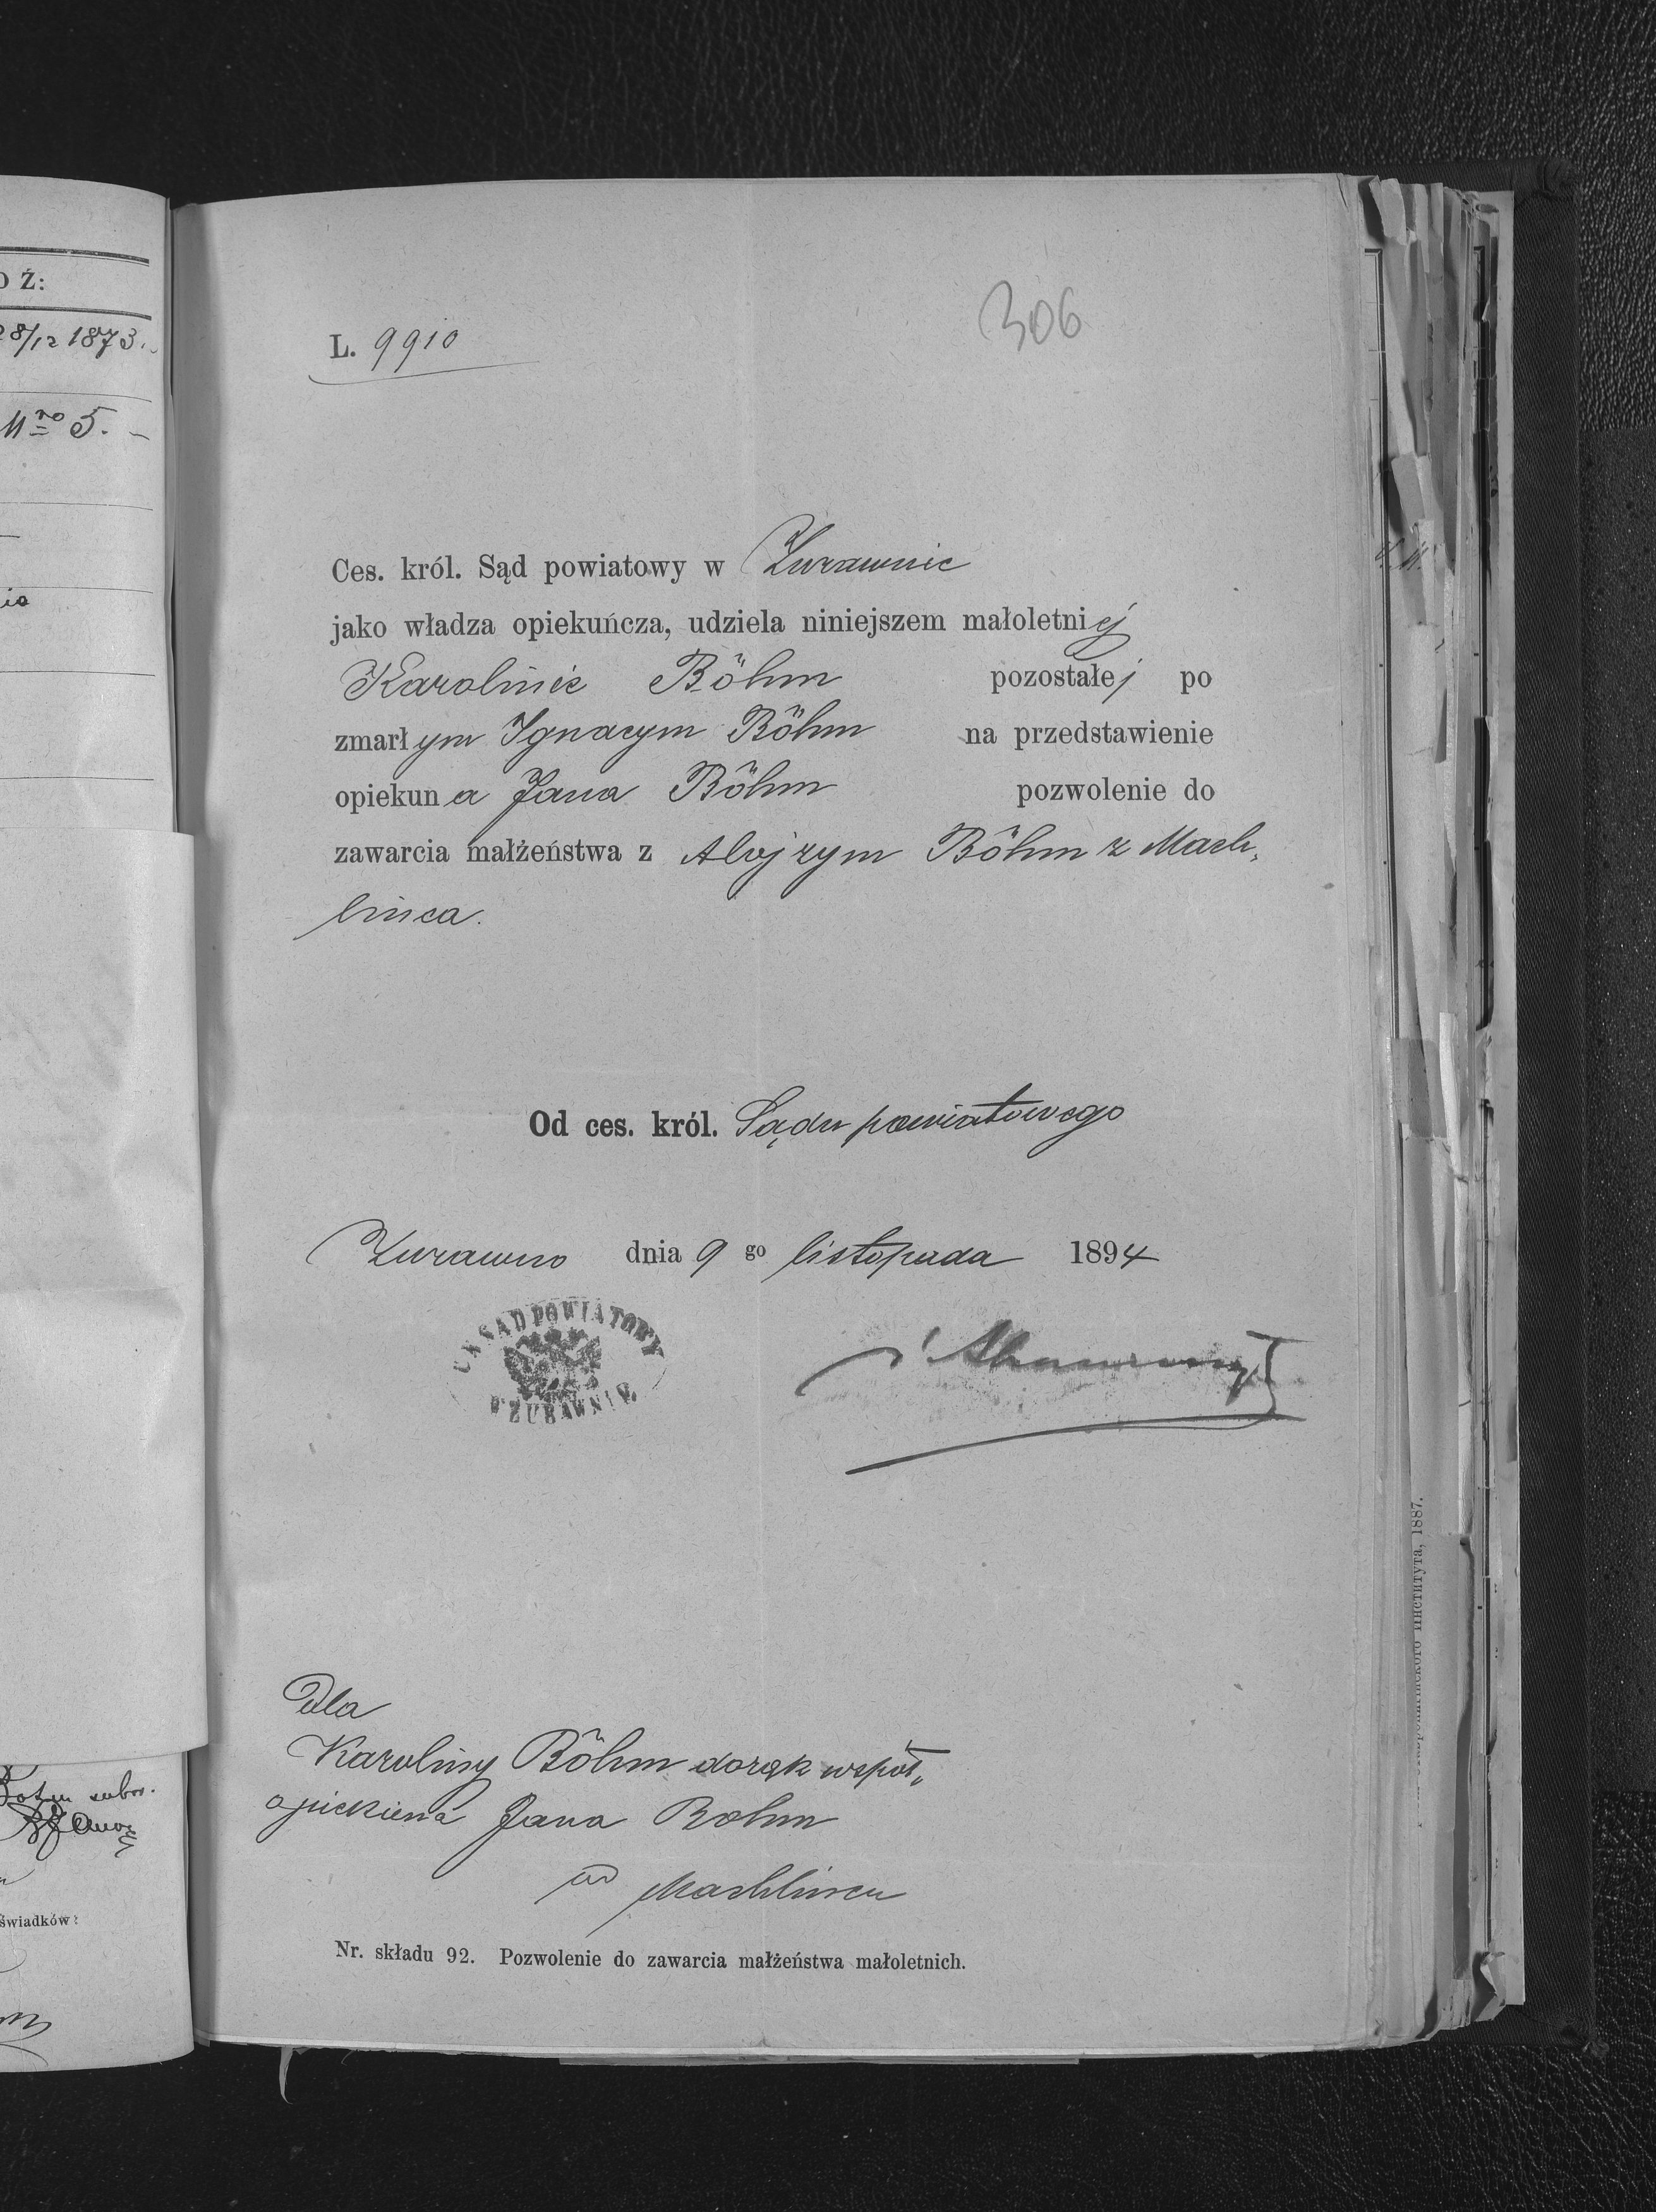 O Ź:
28/12 1873.
Nro 5. -
306
L. 9910
Ces. król. Sąd powiatowy w Żurawnie
jako władza opiekuńcza, udziela niniejszem małoletniej
Karolinie Böhm pozostałej po
zmarłym Ignacym Böhm na przedstawienie
opiekuna Jana Böhm pozwolenie do
zawarcia małżeństwa z Alojzym Böhm z Mach„
linca.
Od ces. król. Sądu powiatowego
Żurawno dnia 9 go listopada 1894
C. K. SĄD POWIATOWY
W ŻURAWNIE
Dla
Karoliny Böhm dorąk współ„
opiekuna Jana Bohm
w Machlincu
Nr. składu 92. Pozwolenie do zawarcia małżeństwa małoletnich.
świadków:
Института, 1887.